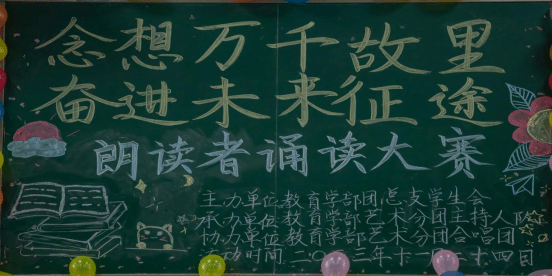 念想万千故里
奋进未来征途
朗读者诵读大赛
主办单位教育学部团总支学生会
承办单位教育学部艺术分团主持人队
协办单位教育学部艺术分团合唱团
办时间二〇二三年十二月十四日